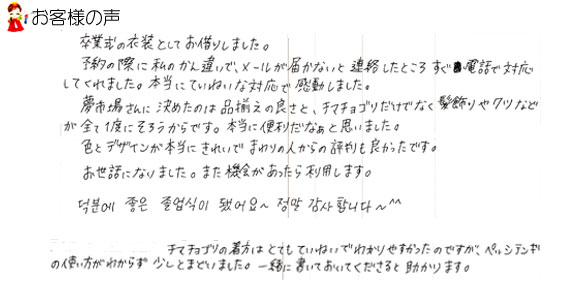 お客様の声
卒業式の衣装としてお借りしました。
予約の際に私のかん違いで、メールが届かないと連絡したところすぐ電話で対応
してくれました。本当にていねいな対応で感動しました。
夢市場さんに決めたのは品揃えの良さと、チマチョゴリだけでなく髪飾りやクツなど
が全て1度にそろうからです。本当に便利だなぁと思いました。
色とデザインが本当にきれいでまわりの人からの評判も良かったです。
お世話になりました。また機会があったら利用します。
덕분에 좋은 졸업식이 됐어요~ 정말 감사합니다~^^
チマチョゴリの着方はとてもていねいでわかりやすかったのですが、ペルシテンギ
の使い方がわからず少しとまどいました。一緒に書いておいてくださると助かります。